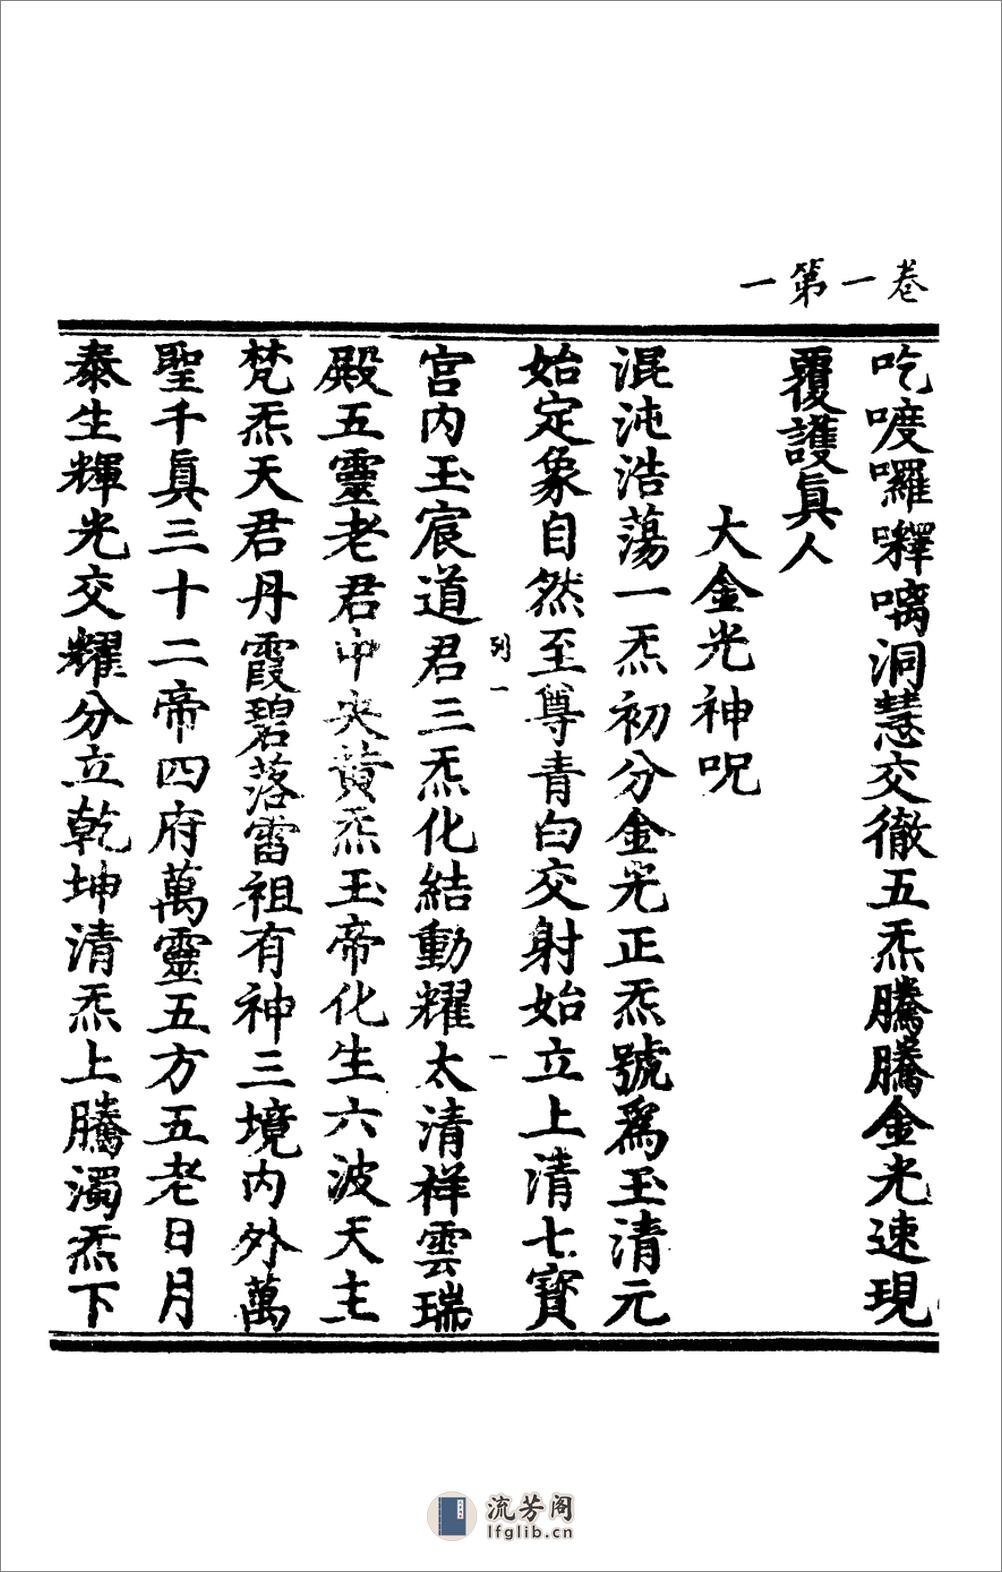 卷一第一
吃喥囉釋㖿洞慧交徹五炁騰騰金光速現
覆護眞人
大金光神呪
混沌浩蕩一炁初分金光正炁號爲玉清元
始定象自然至尊青白交射始立上清七寳
列一
一
宫内玉宸道君三炁化結動耀太清祥雲瑞
殿五靈老君中央黃炁玉帝化生六波天主
梵炁天君丹霞碧落雷祖有神三境内外萬
聖千眞三十二帝四府萬靈五方五老日月
泰生輝光交耀分立乾坤清炁上騰濁炁下
流芳阁
lfglib.cn